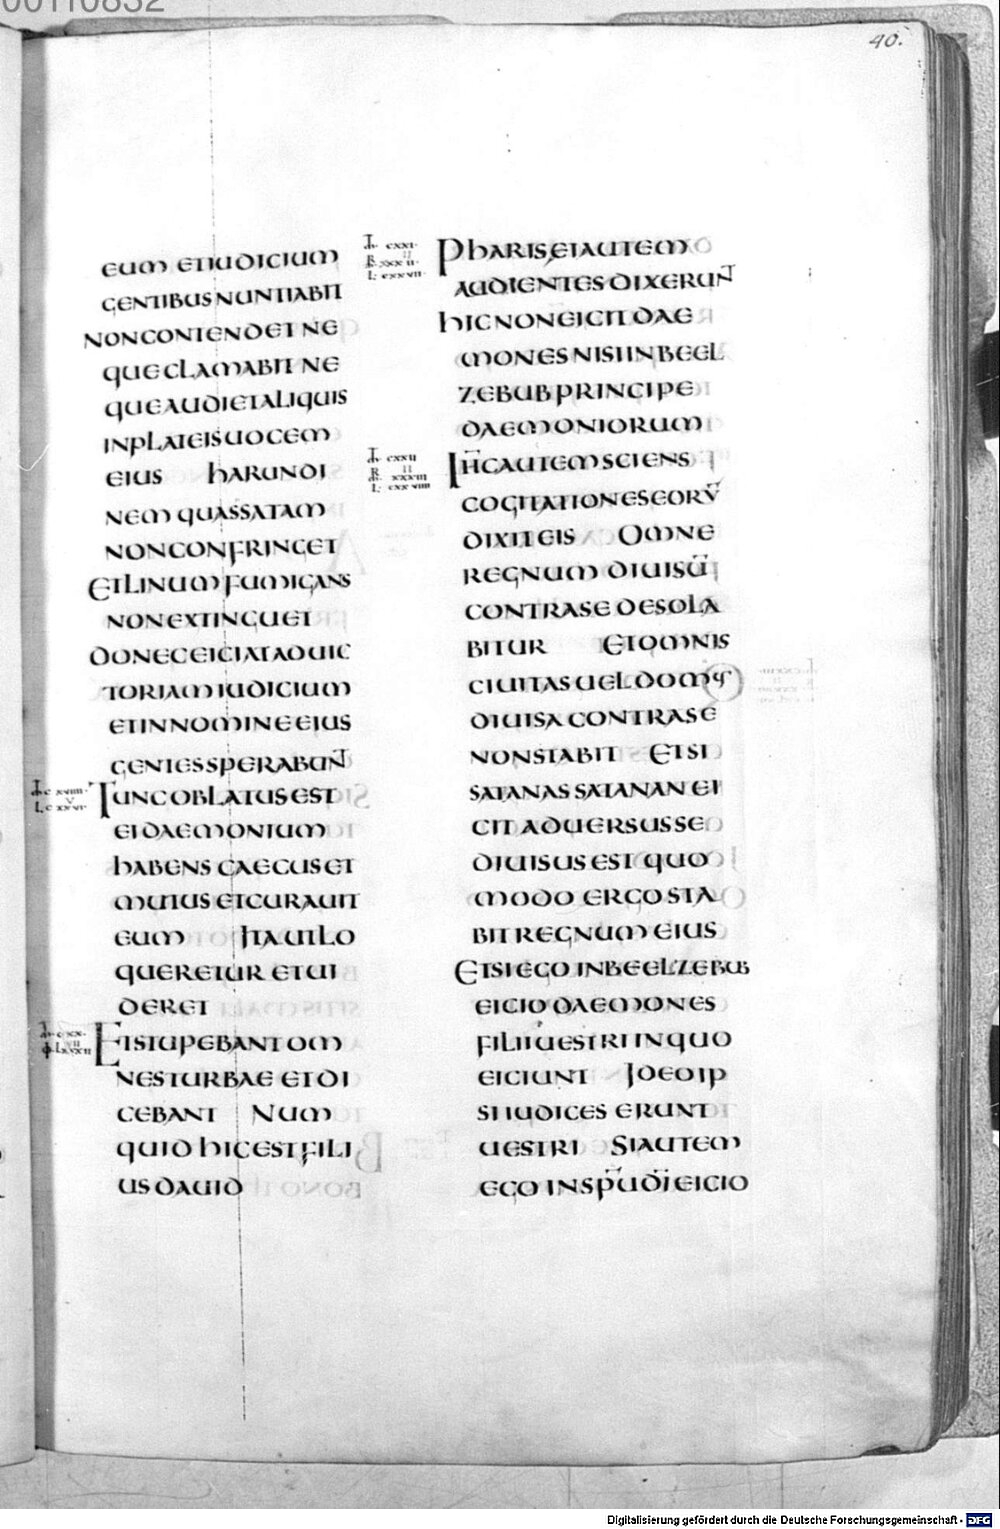 40.
EUM ETIUDICIUM
GENTIBUS NUNTIABIT
NON CONTENDET NE
QUE CLAMABIT NE
QUE AUDIET ALIQUIS
IN PLATEIS UOCEM
EIUS HARUNDI
NEM QUASSATAM
NON CONFRINGET
ET LINUM FUMIGANS
NON EXTINGUET
DONEC EICIAT AD UIC
TORIAM IUDICIUM
ET IN NOMINE EIUS
GENTES SPERABUN̄T
TUNC OBLATUS EST
EI DAEMONIUM
HABENS CAECUS ET
MUTUS ET CURAUIT
EUM ITA UT LO
QUERETUR ET UI
DERET
ET STUPEBANT OM
NES TURBAE ET DI
CEBANT NUM
QUID HIC EST FILI
US DAUID
PHARISAEI AUTEM
AUDIENTES DIXERUN̄T
HIC NON EICIT DAE
MONES NISI IN BEEL
ZEBUB PRINCIPE
DAEMONIORUM
IH̄C AUTEM SCIENS
COGITATIONES EORŪ
DIXIT EIS OMNE
REGNUM DIUISŪ
CONTRA SE DESOLA
BITUR ET OMNIS
CIUITAS UEL DOMUS
DIUISA CONTRA SE
NON STABIT ET SI
SATANAS SATANAN EI
CIT ADUERSUS SE
DIUISUS EST QUO
MODO ERGO STA
BIT REGNUM EIUS
ET SI EGO IN BEELZEBUB
EICIO DAEMONES
FILII UESTRI IN QUO
EICIUNT IDEO IP
SI IUDICES ERUNT
UESTRI SI AUTEM
EGO IN SP̄U DĪ EICIO
Digitalisierung gefördert durch die Deutsche Forschungsgemeinschaft - DFG